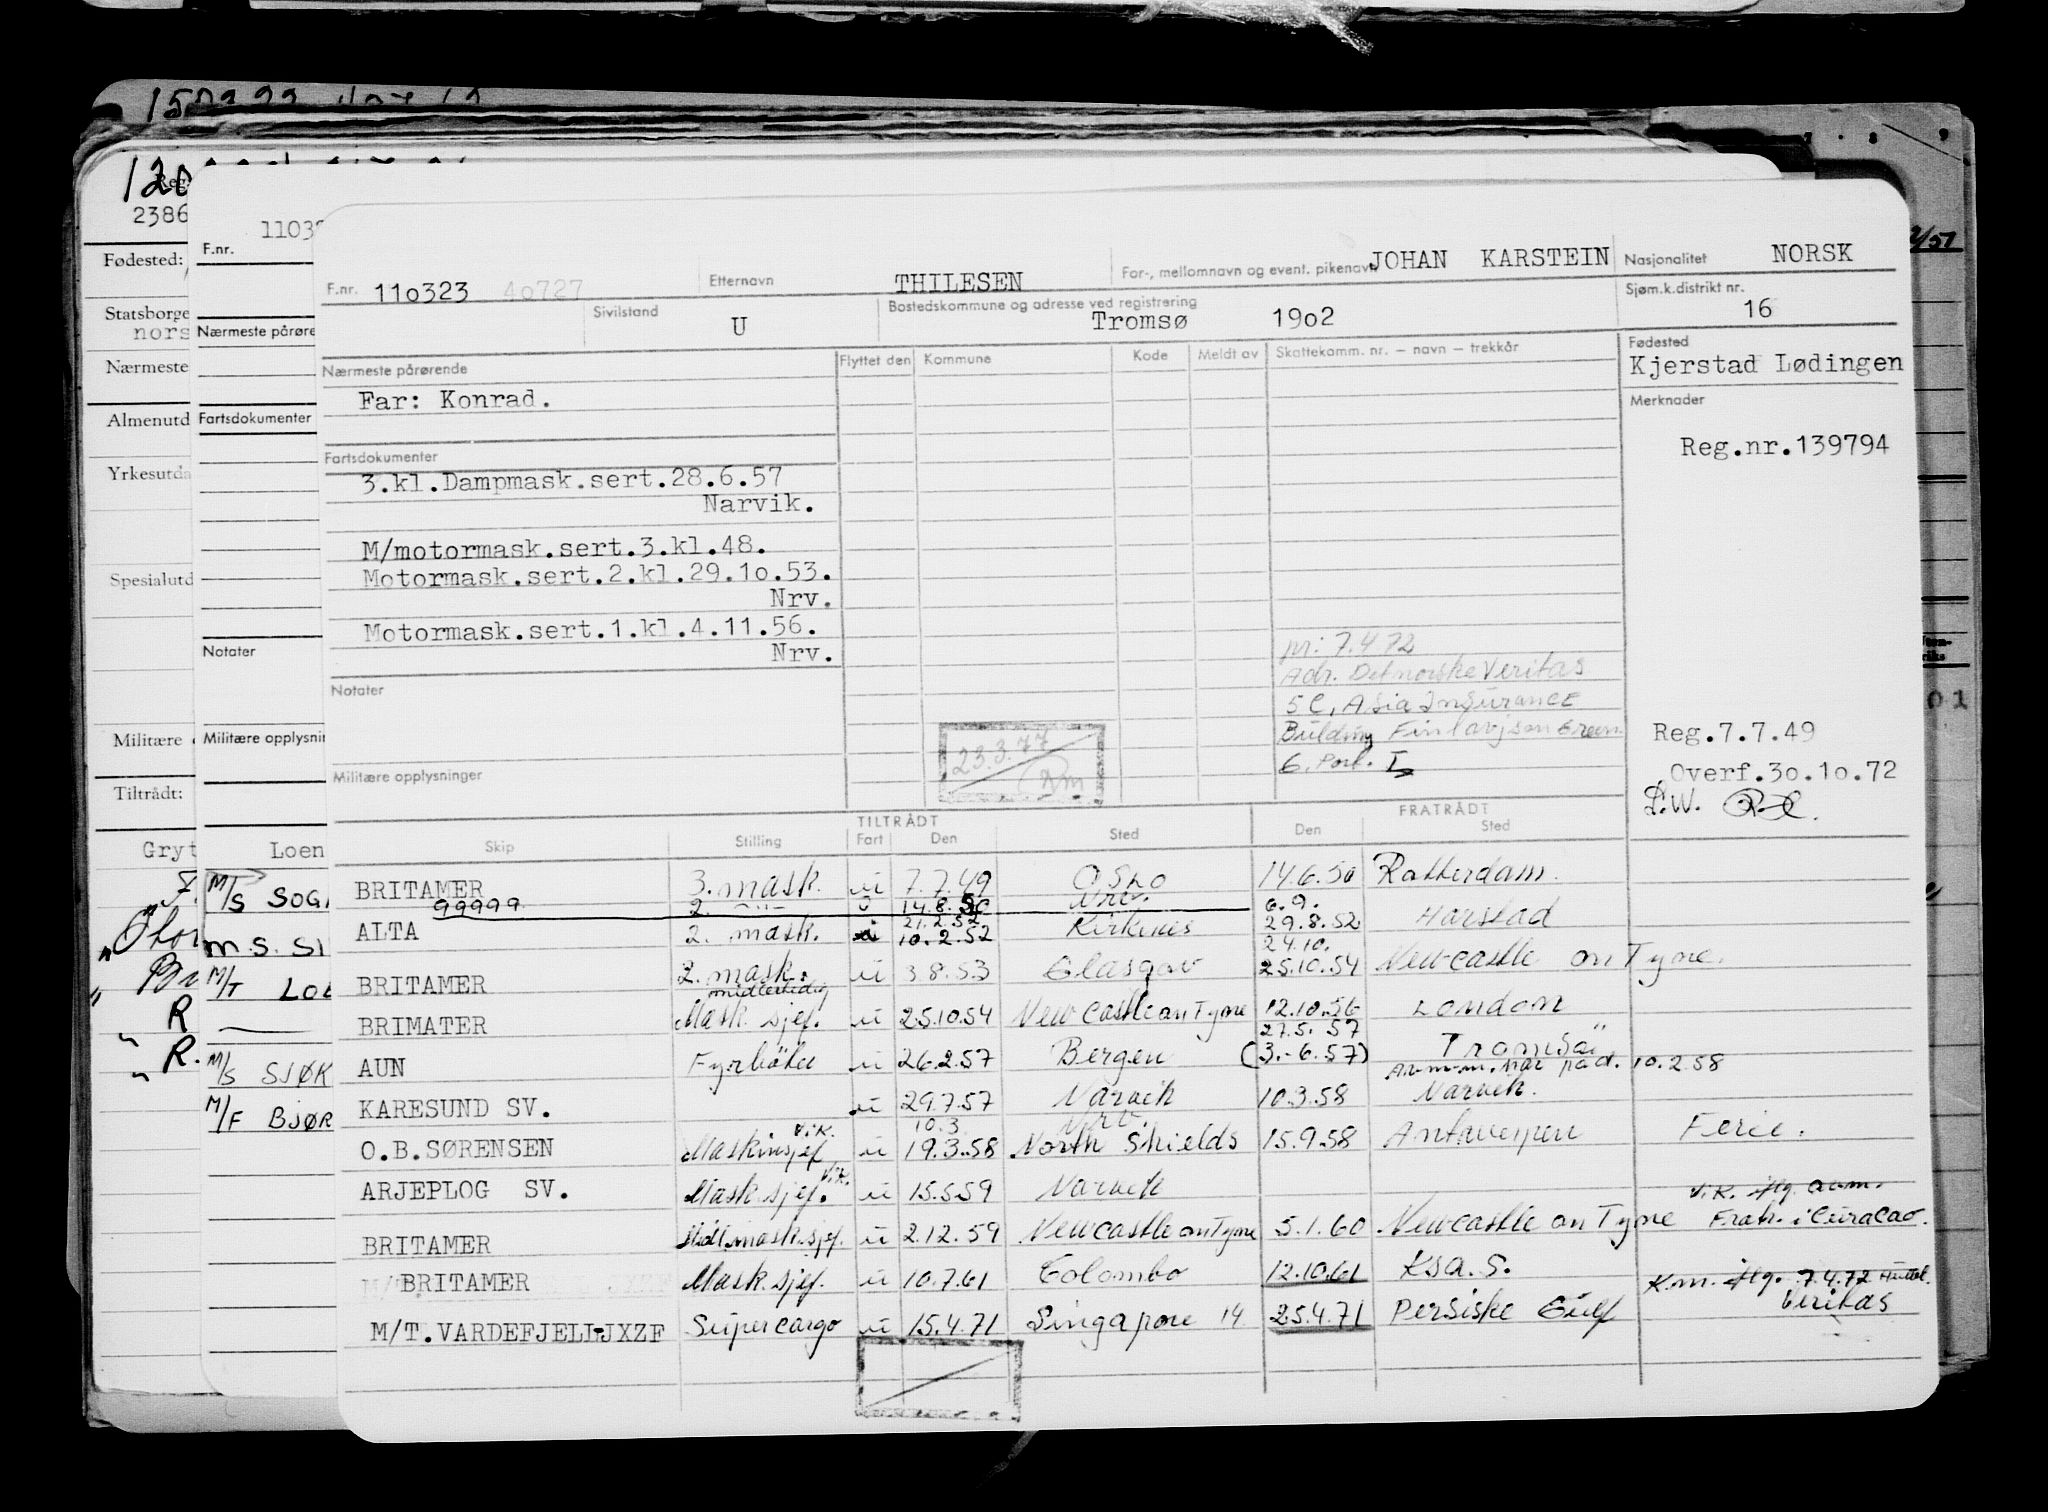 F.nr. 110323 40727
Etternavn THILESEN
For-, mellomnavn og event. pikenavn JOHAN KARSTEIN
Nasjonalitet NORSK
Sivilstand U
Bostedskommune og adresse ved registrering
Tromsø 1902
Sjøm.k.distrikt nr. 16
Nærmeste pårørende
Flyttet den Kommune Kode Meldt av Skattekomm. nr. – navn – trekkår
Fødested
Kjerstad Lødingen
Far: Konrad.
Merknader
Reg.nr.139794
Fartsdokumenter
3.kl.Dampmask.sert.28.6.57
Narvik.
M/motormask.sert.3.kl.48.
Motormask.sert.2.kl.29.10.53.
Nrv.
Motormask.sert.1.kl.4.11.56.
Nrv.
7.4.72
Adr. Det norske Veritas
5C, Asia Insurance
Building Finlayson Green
Notater
23.3.77
Reg.7.7.49
Overf.30.10.72
L.W.
Militære opplysninger
TILTRÅDT FRATRÅDT
Skip Stilling Fart Den Sted Den Sted
BRITAMER 3. mask. u 7.7.49 Oslo 14.6.50 Rotterdam.
99999 2. 14.8.50 Nrv. 6.9.
21.2.52
ALTA 2. mask. 10.2.52 Kirkenes 29.8.52 Harstad
24.10.
BRITAMER 2. mask. u 3.8.53 Glasgow 25.10.54 Newcastle on Tyne.
midlertidig
BRIMATER Mask.sjef. u 25.10.54 Newcastle on Tyne 12.10.56 London
27.5.57
AUN Fyrbøter u 26.2.57 Bergen (3.-6.57) Tromsø
10.2.58
KARESUND SV. u 29.7.57 Narvik 10.3.58 Narvik.
v.k. 10.3. Nrv.
O.B.SØRENSEN Maskinsjef u 19.3.58 North Shields 15.9.58 Antwerpen Ferie.
ARJEPLOG SV. Mask.sjef. v.k. u 15.5.59 Narvik
v.k. iflg. avm.
BRITAMER Midl.mask.sjef. u 2.12.59 Newcastle on Tyne 5.1.60 Newcastle on Tyne Fratr. i Curacao.
BRITAMER Mask.sjef. u 10.7.61 Colombo 12.10.61 Ksa. S.
K.m. iflg. 7.4.72
Veritas
M/T.VARDEFJELL JXZF Supercargo u 15.4.71 Singapore 14 25.4.71 Persiske Gulf
F.nr.
Nærmeste pårøre
Fartsdokumenter
Notater
Militære opplysnin
Loen
M/S SOG
M.S. SI
M/T
M/S SJØK
M/F BJØR
2386
Fødested:
Statsborge
nors
Nærmeste
Almenutd
Yrkesutda
Spesialutd
Militære
Tiltrådt:
Gryt
R
R.
7 8 9